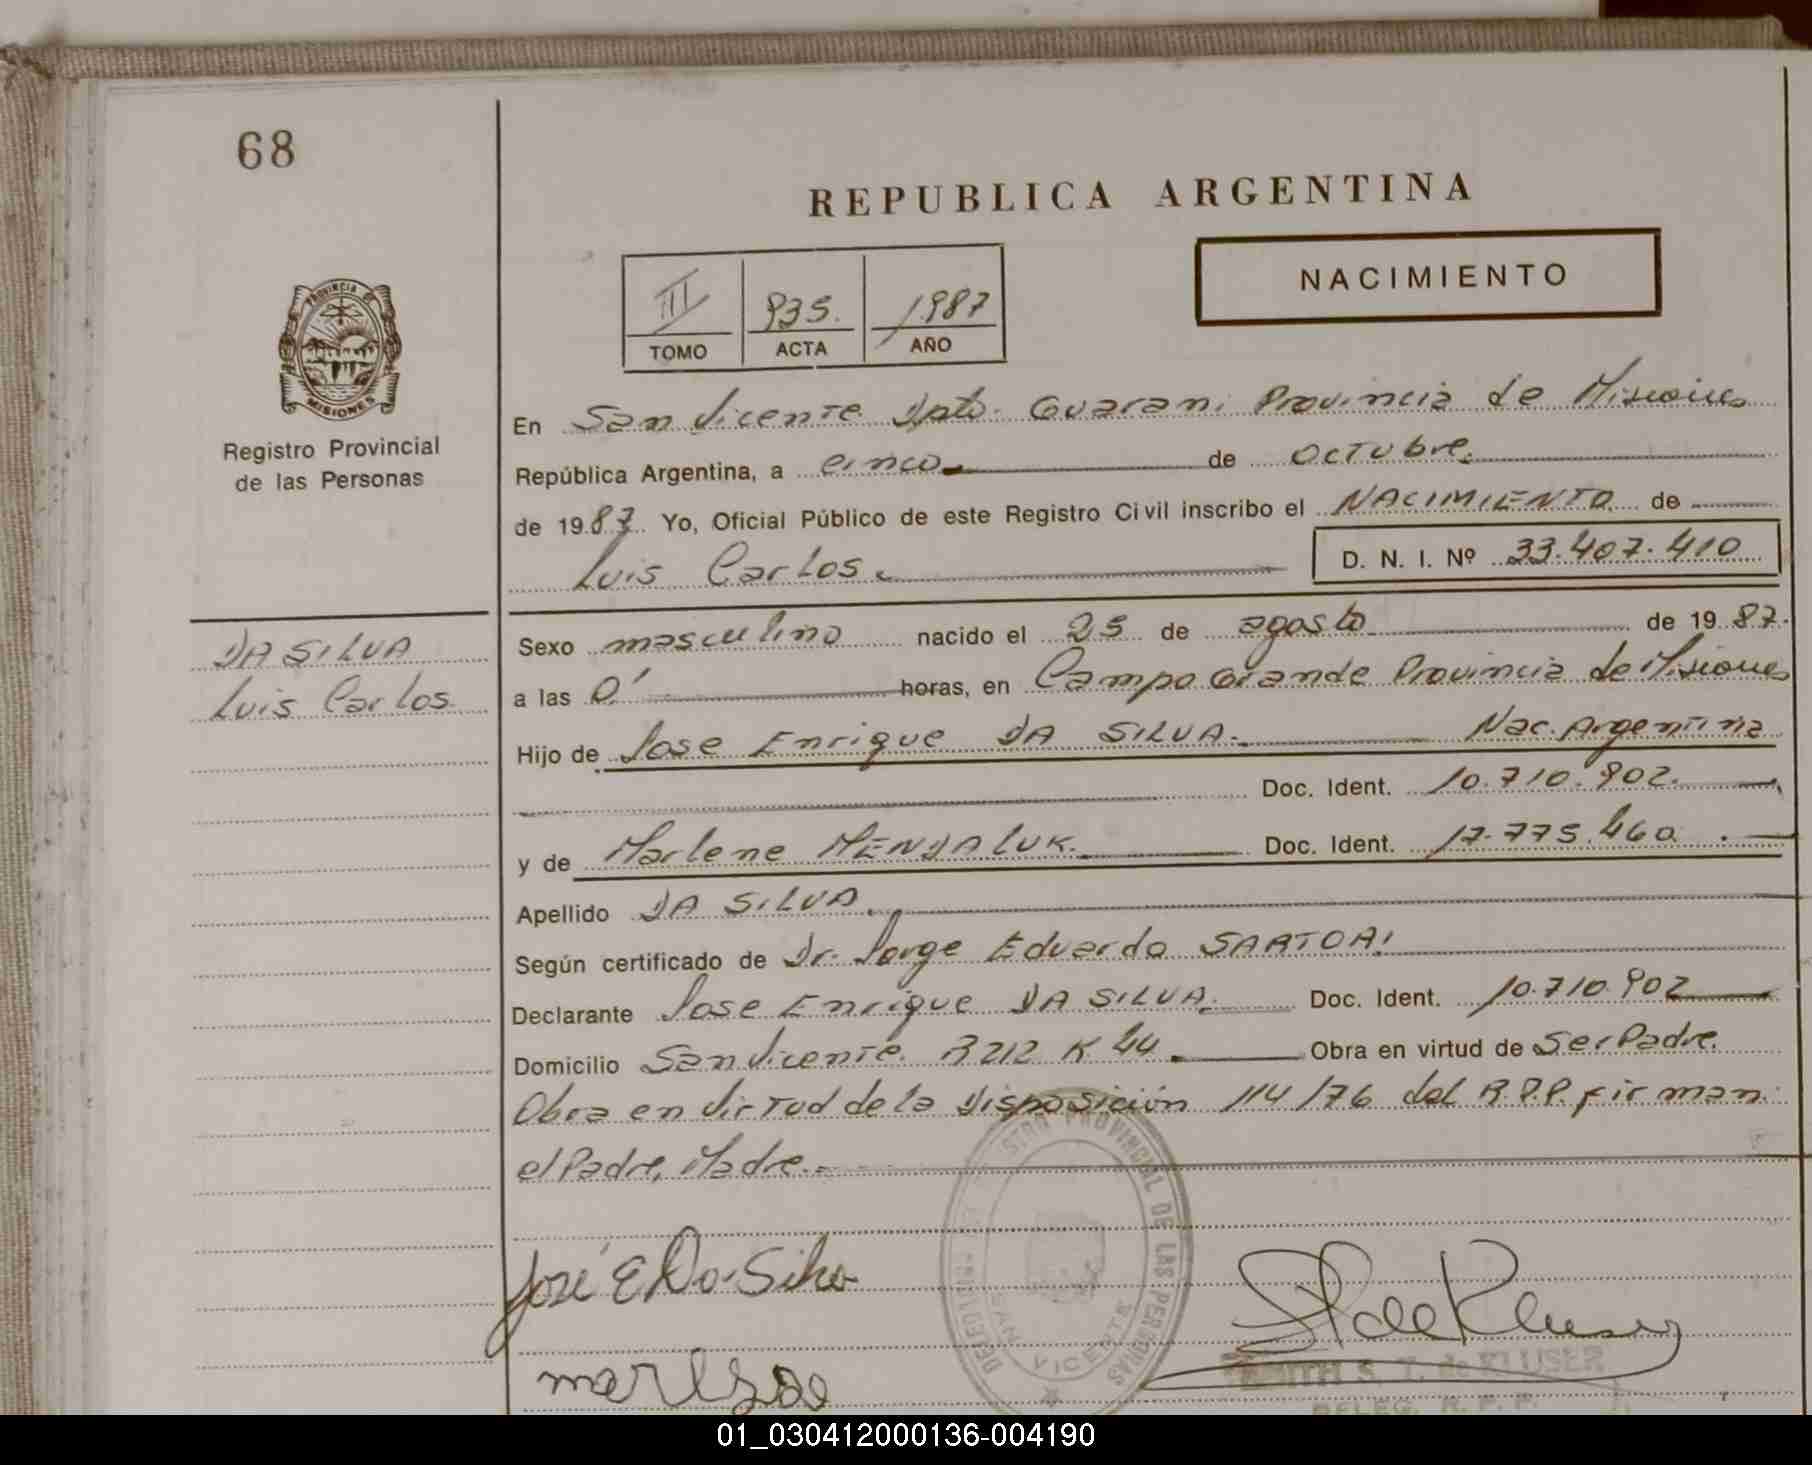 68
REPUBLICA ARGENTINA
NACIMIENTO
III 935. 1987
TOMO ACTA AÑO
PROVINCIA DE
MISIONES
Registro Provincial
de las Personas
En San Vicente Dpto. Guarani Provincia de Misiones
República Argentina, a cinco de Octubre.
de 1987. Yo, Oficial Público de este Registro Civil inscribo el NACIMIENTO de
Luis Carlos. D. N. I. Nº 33.407.410
DA SILVA
Luis Carlos.
Sexo masculino nacido el 25 de agosto de 1987.
a las 0' horas, en Campo Grande Provincia de Misiones
Hijo de Jose Enrique DA SILVA. Nac. Argentina
Doc. Ident. 10.710.902.
y de Marlene MENDALUK. Doc. Ident. 17.775.460.
Apellido DA SILVA.
Según certificado de Dr. Jorge Eduardo SARTORI
Declarante Jose Enrique DA SILVA. Doc. Ident. 10.710.902
Domicilio San Vicente. R 212 K 44. Obra en virtud de Ser Padre.
Obra en Virtud de la Disposición 114/76 del R.P.P. firman
el Padre, Madre.
José E Da Silva
REGISTRO PROVINCIAL DE LAS PERSONAS
SAN VICENTE
EDITH S. T. de KLUSER
DELEG. R. P. P.
01_030412000136-004190